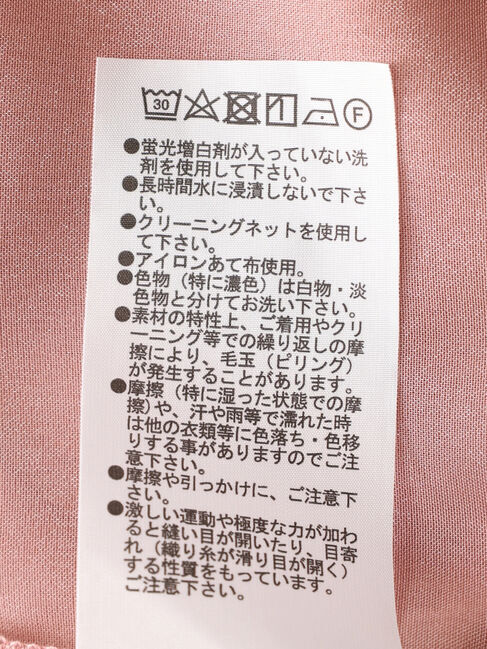 30 F
●蛍光増白剤が入っていない洗
剤を使用して下さい。
●長時間水に浸漬しないで下さ
い。
●クリーニングネットを使用し
て下さい。
●アイロンあて布使用。
●色物（特に濃色）は白物・淡
色物と分けてお洗い下さい。
●素材の特性上、ご着用やクリ
ーニング等での繰り返しの摩
擦により、毛玉（ピリング）
が発生することがあります。
●摩擦（特に湿った状態での摩
擦）や、汗や雨等で濡れた時
は他の衣類等に色落ち・色移
りする事がありますのでご注
意下さい。
●摩擦や引っかけに、ご注意下
さい。
●激しい運動や極度な力が加わ
ると縫い目が開いたり、目寄
れ（織り糸が滑り目が開く）
する性質をもっています。